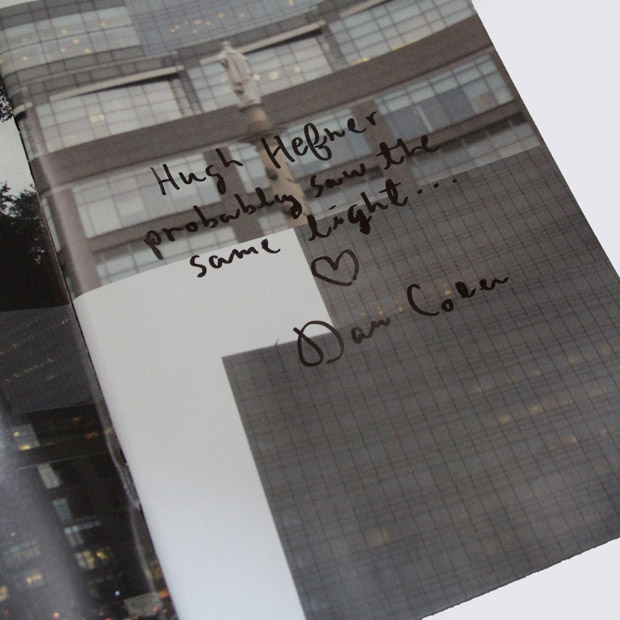 Hugh Hefner
probably saw the
same light...
♡
Dan Colen